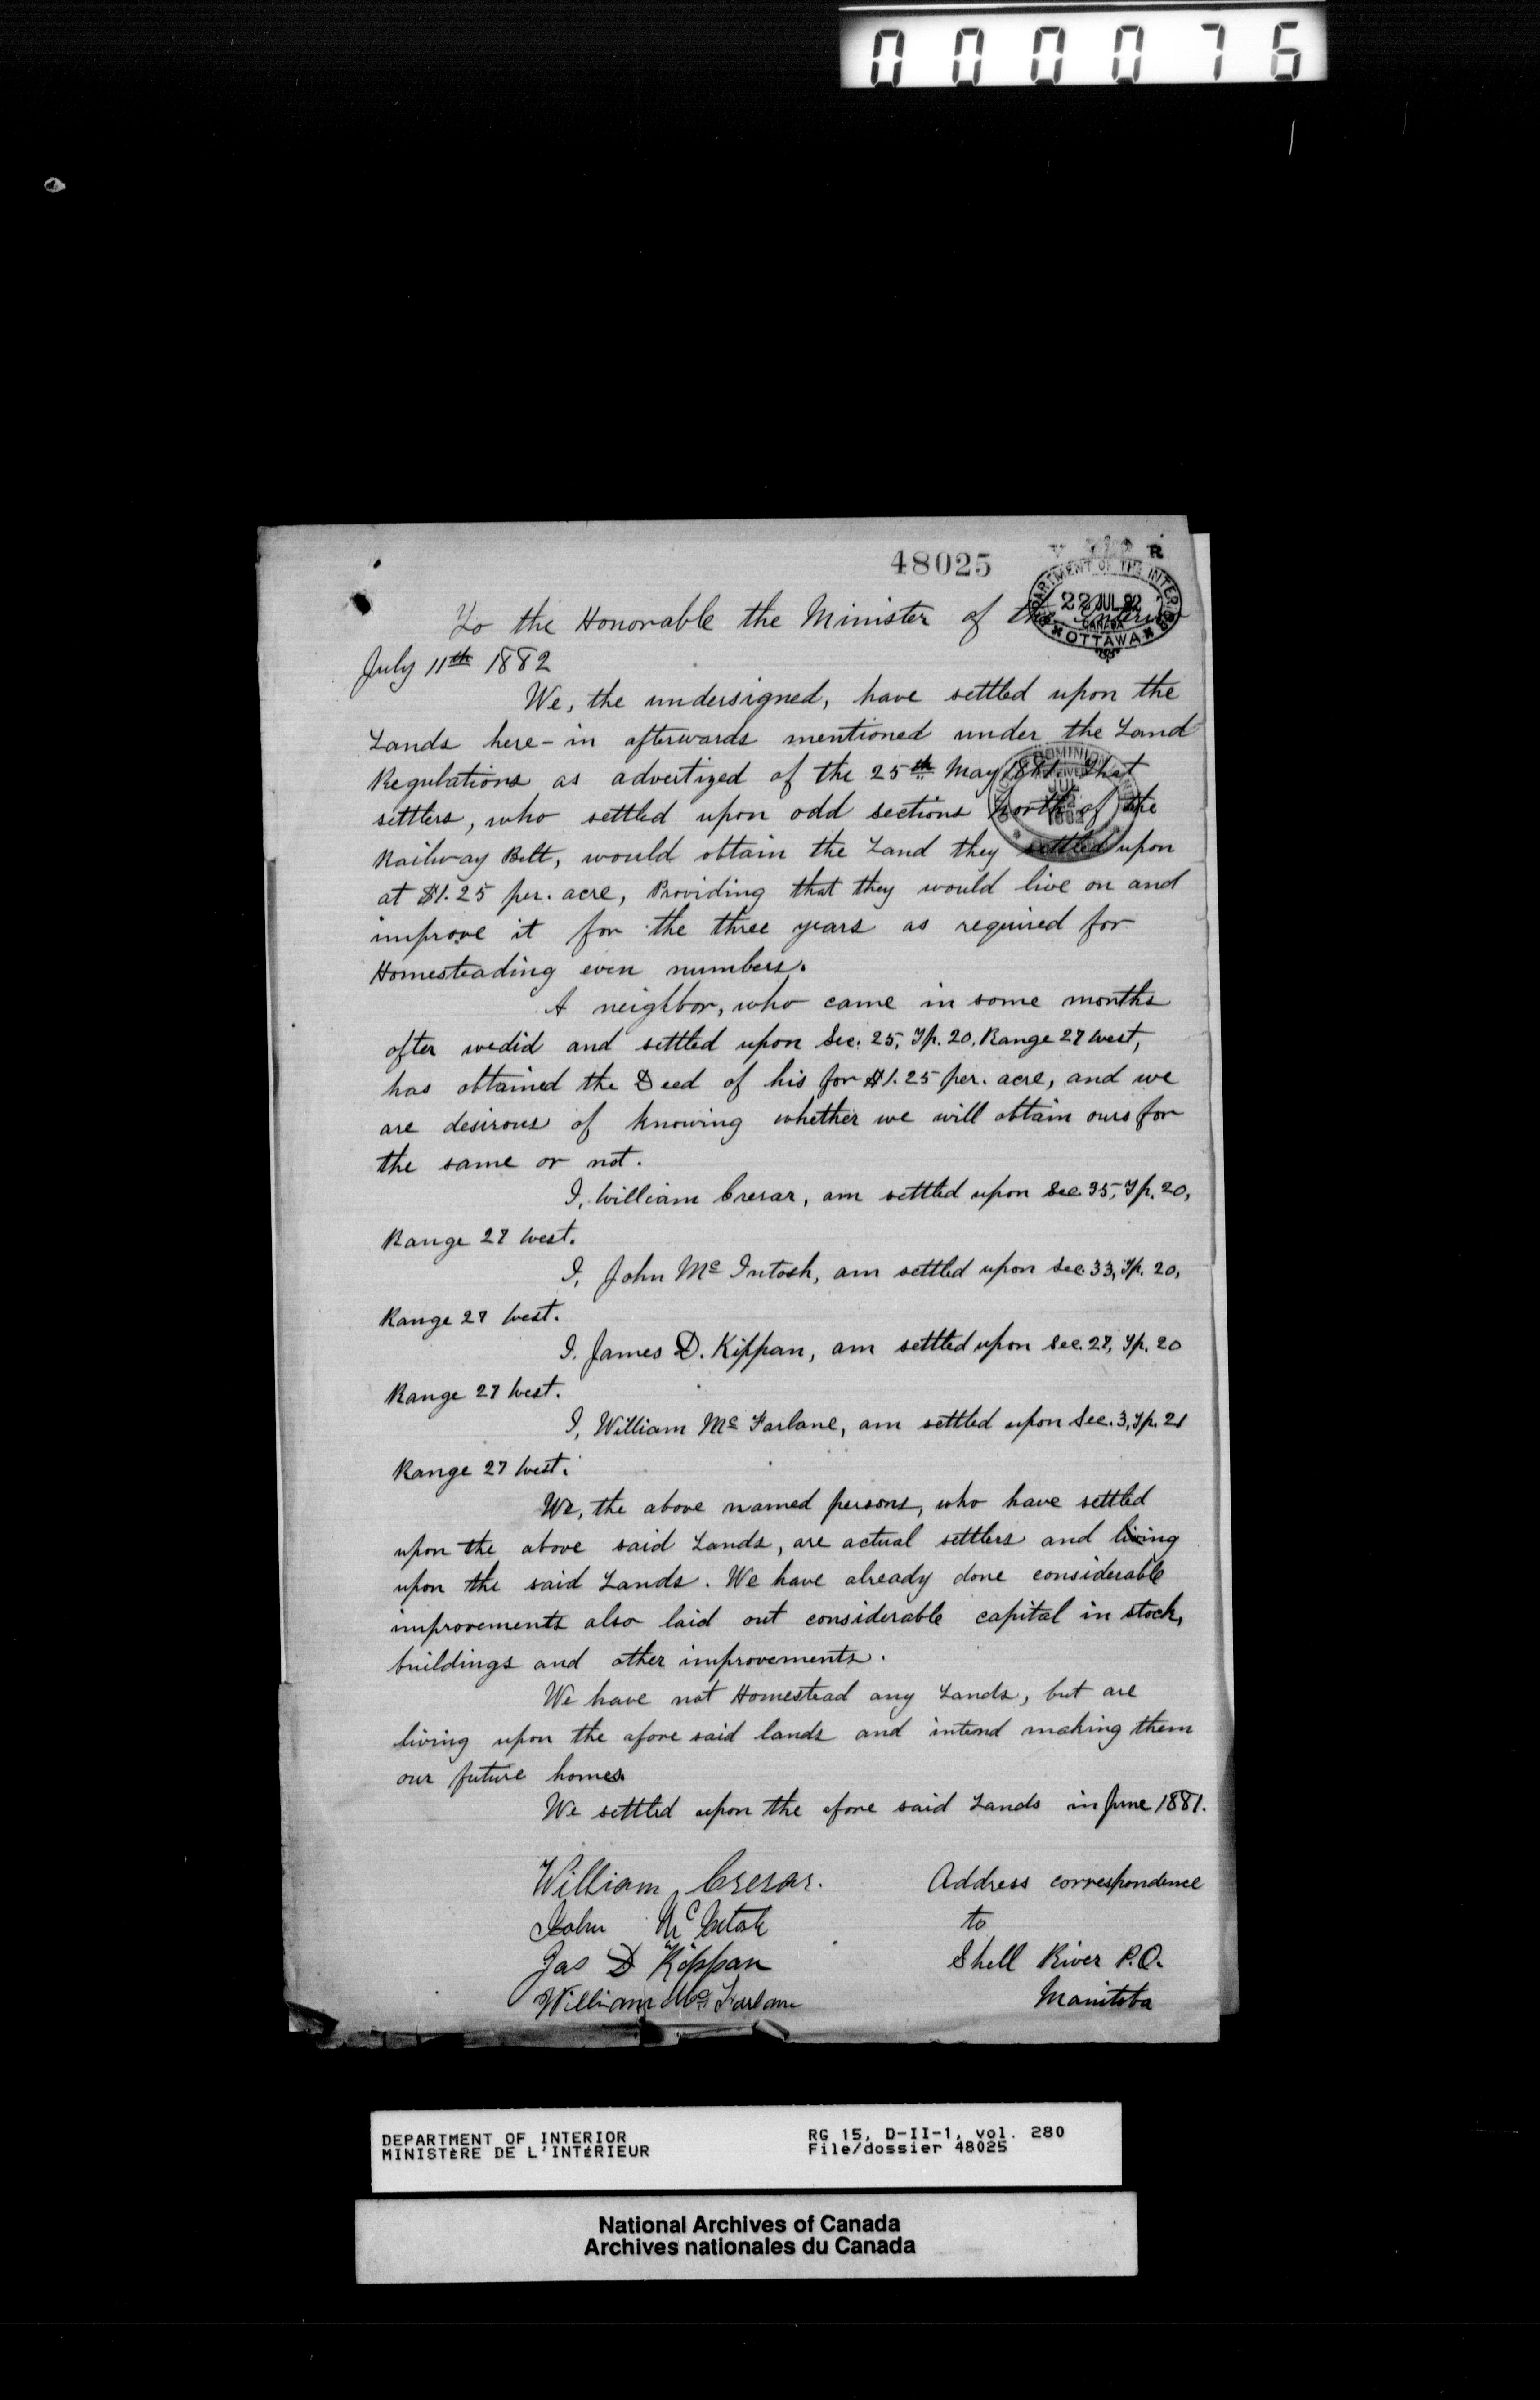 000076
48025
DEPARTMENT OF THE INTERIOR
22 JUL 82
CANADA
OTTAWA
To the Honorable the Minister of the Interior
July 11th 1882
We, the undersigned, have settled upon the
Lands here-in afterwards mentioned under the Land
Regulations as advertized of the 25th May 1881. That
settlers, who settled upon odd sections north of the
Railway Belt, would obtain the Land they settled upon
at $1.25 per. acre, Providing that they would live on and
improve it for the three years as required for
Homesteading even numbers.
A neighbor, who came in some months
after we did and settled upon Sec. 25, Tp. 20, Range 27 West,
has obtained the Deed of his for $1.25 per. acre, and we
are desirous of knowing whether we will obtain ours for
the same or not.
I, William Cresar, am settled upon Sec. 35, Tp. 20,
Range 27 West.
I, John Mc Intosh, am settled upon Sec. 33, Tp. 20,
Range 27 West.
I, James D. Kippan, am settled upon Sec. 27, Tp. 20
Range 27 West.
I, William Mc Farlane, am settled upon Sec. 3, Tp. 21
Range 27 West.
We, the above named persons, who have settled
upon the above said Lands, are actual settlers and living
upon the said Lands. We have already done considerable
improvements also laid out considerable capital in stock,
buildings and other improvements.
We have not Homestead any Lands, but are
living upon the afore said lands and intend making them
our future homes.
We settled upon the afore said Lands in June 1881.
William Cresar.
John Mc Intosh
Jas D Kippan
William Mc Farlane
Address correspondence
to
Shell River P.O.
Manitoba
DEPARTMENT OF INTERIOR
MINISTÈRE DE L'INTÉRIEUR
RG 15, D-II-1, vol. 280
File/dossier 48025
National Archives of Canada
Archives nationales du Canada